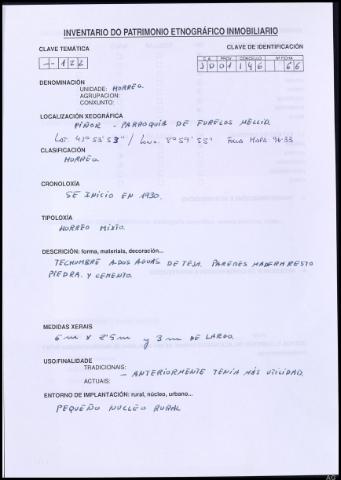 INVENTARIO DO PATRIMONIO ETNOGRÁFICO INMOBILIARIO
CLAVE TEMÁTICA CLAVE DE IDENTIFICACIÓN
C.A. PROV. CONCELLO Nº FICHA
DENOMINACIÓN
UNIDADE: HORREO
AGRUPACION:
CONXUNTO:
LOCALIZACIÓN XEOGRÁFICA
PIÑOR - PARROQUIA DE FURELOS MELLID.
CLASIFICACIÓN
HORREO
CRONOLOXÍA
SE INICIO EN 1930.
TIPOLOXÍA
HORREO MIXTO.
DESCRICIÓN: forma, materiais, decoración...
TECHUMBRE A DOS AGUAS DE TEJA. PAREDES MADERA RESTO
PIEDRA Y CEMENTO.
MEDIDAS XERAIS
Y 3 m DE LARGO.
USO/FINALIDADE
TRADICIONAIS:
- ANTERIORMENTE TENIA MÁS UTILIDAD.
ACTUAIS:
ENTORNO DE IMPLANTACIÓN: rural, núcleo, urbano...
PEQUEÑO NUCLEO RURAL